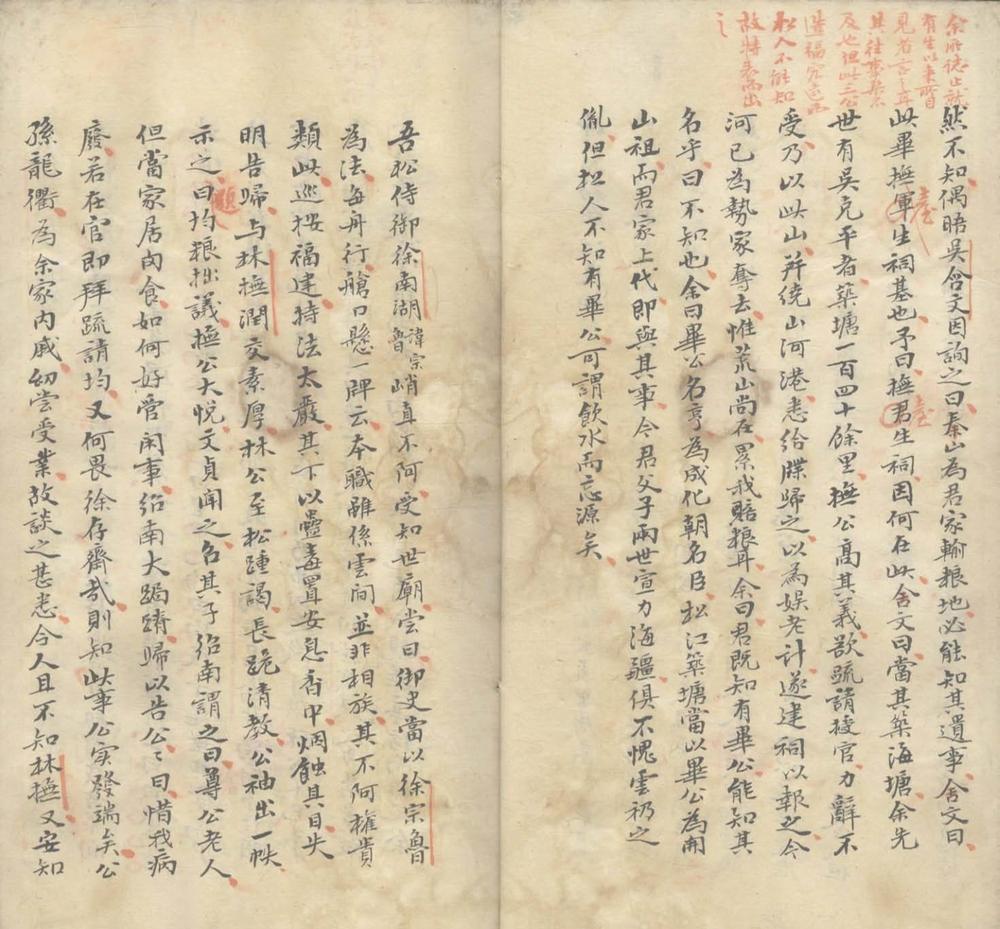 余所憶止就
有生以来所目
見者言之耳
其往事恐不
及也但此三公
造福
松人不能知
故特表而出
之
然不知偶晤吳含文因詢之曰秦山為君家輸粮地必能知其遺事含文曰
此畢撫軍生祠基也予曰撫君生祠因何在此含文曰當其築海塘余先
臺
臺
世有吳克平者築塘一百四十餘里撫公高其義欲疏請授官力辭不
受乃以此山并繞山河港悉給牒歸之以為娛老計遂建祠以報之今
河已為勢家奪去惟荒山尚在累我賠粮耳余曰君既知有畢公能知其
名乎曰不知也余曰畢公名亨為成化朝名臣松江築塘當以畢公為開
山祖而君家上代即與其事今君父子兩世宣力海疆俱不愧雲礽之
胤但松人不知有畢公可謂飲水而忘源矣
吾松侍御徐南湖諱宗魯峭直不阿受知世廟嘗曰御史當以徐宗魯
為法每舟行艙口懸一牌云本職雖係雲間並非相族其不阿權貴
類此巡按福建持法太嚴其下以蠱毒置安息香中烟蝕其目失
明告歸與林撫潤交素厚林公至松踵謁長跪請教公袖出一帙
題
示之曰均粮拙議撫公大悅文貞聞之名其子紹南謂之曰尊公老人
但當家居肉食如何好管閑事紹南大跼蹐歸以告公公曰惜我病
廢若在官即拜疏請均又何畏徐存齋哉則知此事公实發端矣公
孫龍衢為余家內戚幼嘗受業故談之甚悉今人且不知林撫又安知